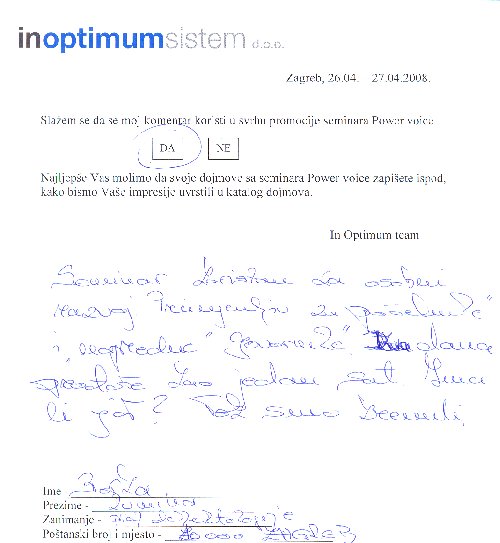 inoptimumsistem d.o.o.
Zagreb, 26.04. - 27.04.2008.
Slažem se da se moj komentar koristi u svrhu promocije seminara Power voice
DA NE
Najljepše Vas molimo da svoje dojmove sa seminara Power voice zapišete ispod,
kako bismo Vaše impresije uvrstili u katalog dojmova.
In Optimum team
Seminar za osobni
razvoj za "početnike"
i "napredne" "govornike" Dva dana
kao jedan sat Ima
li još? Tek smo krenuli
Ime
Prezime -
Zanimanje -
Poštanski broj i mjesto - 10000 ZAGREB